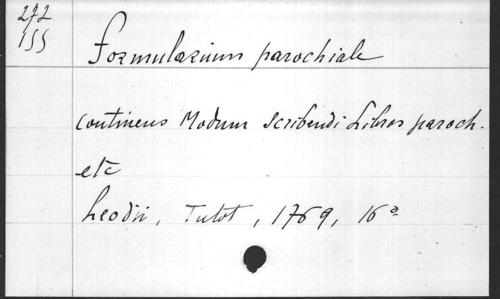 272
155
Formularium parochiale
continens Modum scribendi Libros paroch.
etc
Leodii, Tutot, 1769, 16°